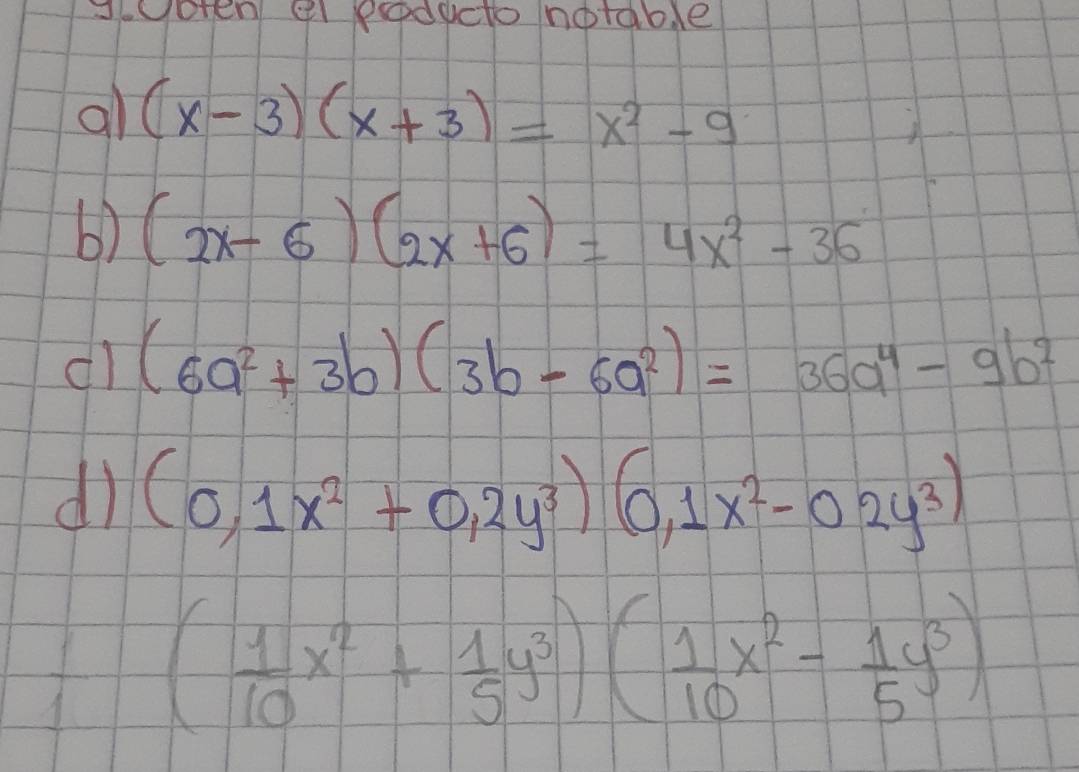 9. Obten el producto notable
a) (x - 3) (x + 3) = x² - 9
b) (2x - 6) (2x + 6) = 4x² - 36
c) (6a² + 3b) (3b - 6a²) = 36a⁴ - 9b²
d) (0,1x² + 0,2y³) (0,1x² - 0 2y³)
(1/10 x² + 1/5 y³) (1/10 x² - 1/5 y³)